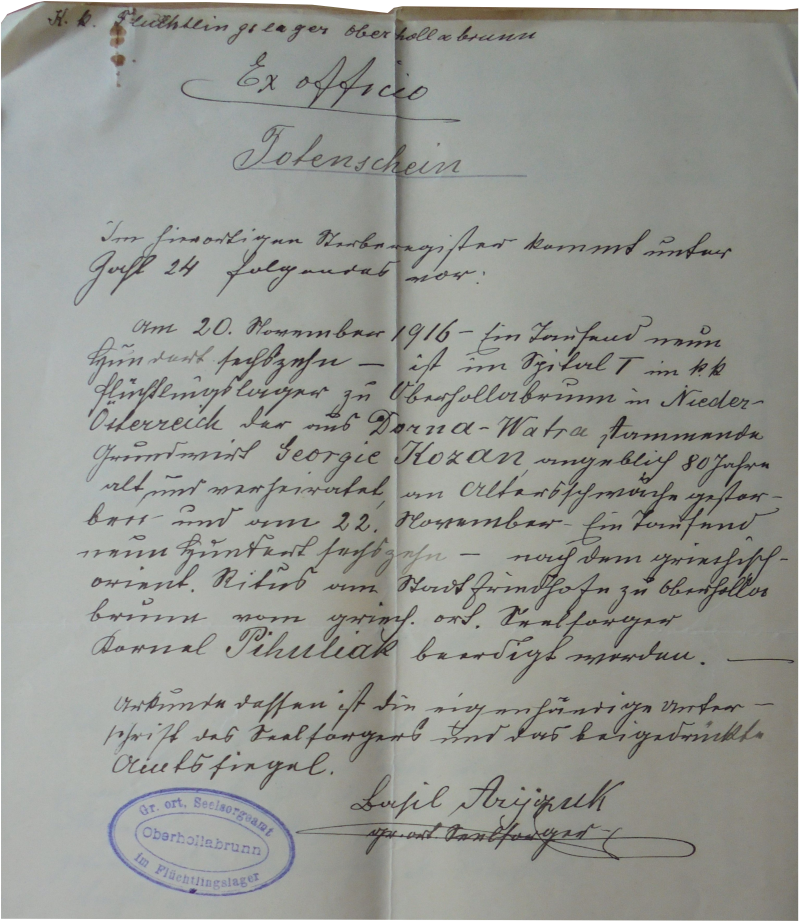 K. k. Flüchtlingslager Oberhollabrunn
Ex officio
Totenschein
Im hierortigen Sterberegister kommt unter
Zahl 24 folgendes vor:
Am 20. November 1916 – Ein Tausend neun
Hundert sechszehn – ist im Spital I im k.k
Flüchtlingslager zu Oberhollabrunn in Nieder-
Österreich der aus Dorna-Watra stammende
Grundwirt Georgie Kozan, angeblich 80 Jahre
alt, und verheiratet, an Altersschwäche gestor-
ben und am 22. November – Ein Tausend
neun Hundert sechszehn – nach dem griechisch-
orient. Ritus am Stadtfriedhofe zu Oberholla
brunn vom griech. ort. Seelsorger
Kornel Pihuliak beerdigt worden. —
Urkunde dessen ist die eigenhändige Unter-
schrift des Seelsorgers und das beigedrückte
Amtssiegel.
Basil
gr. ort Seelsorger
Gr. ort. Seelsorgeamt
Oberhollabrunn
im Flüchtlingslager